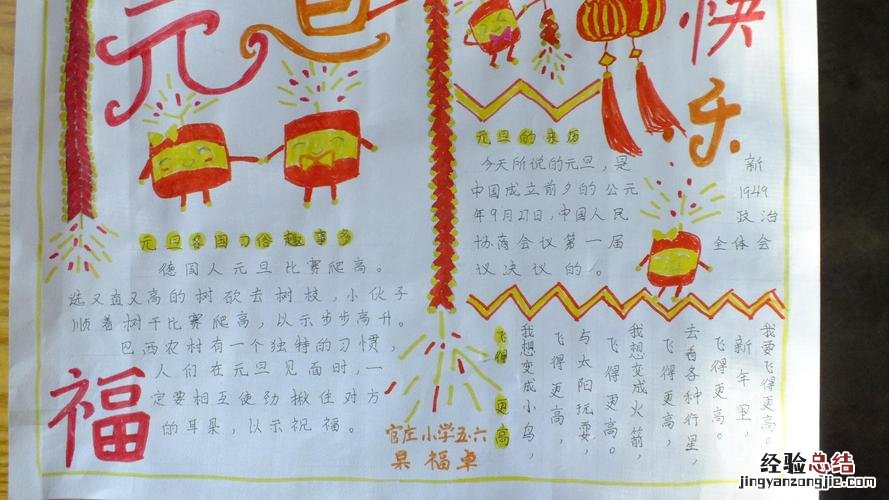 元旦
快乐
元旦的来历
今天所说的元旦，是新
中国成立前夕的公元1949
年9月27日，中国人民政治
协商会议第一届全体会
议决议的。
元旦各国习俗趣事多
德国人元旦比赛爬高。
选又直又高的树砍去树枝，小伙子
顺着树干比赛爬高，以示步步高升。
巴西农村有一个独特的习惯，
人们在元旦见面时，一
定要相互使劲揪住对方
的耳朵，以示祝福。
福
飞得更高
我要飞得更高。
新年里，
飞得更高。
去看各种行星，
飞得更高，
我想变成火箭，
飞得更高。
与太阳玩耍，
飞得更高，
我想变成小鸟，
官庄小学五·六
杲福卓
经验总结
jingyanzongjie.com